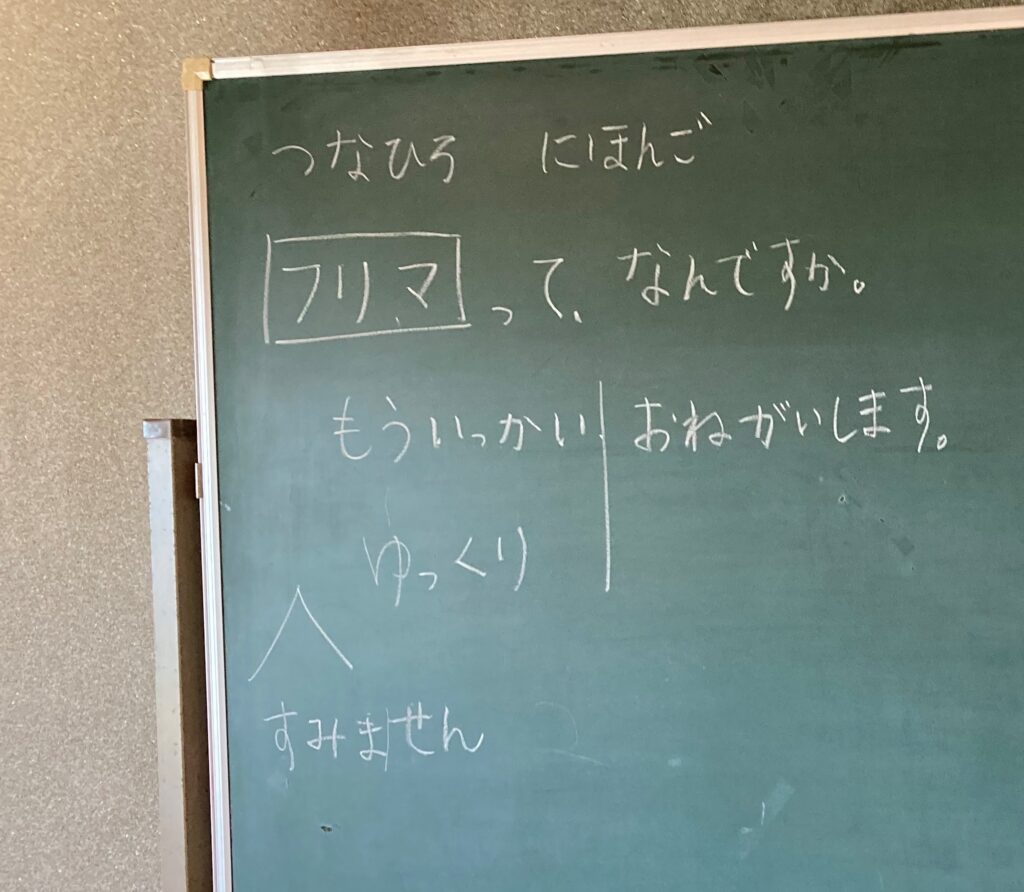 つなひろ にほんご
フリマって、なんですか。
もういっかい おねがいします。
ゆっくり
すみません